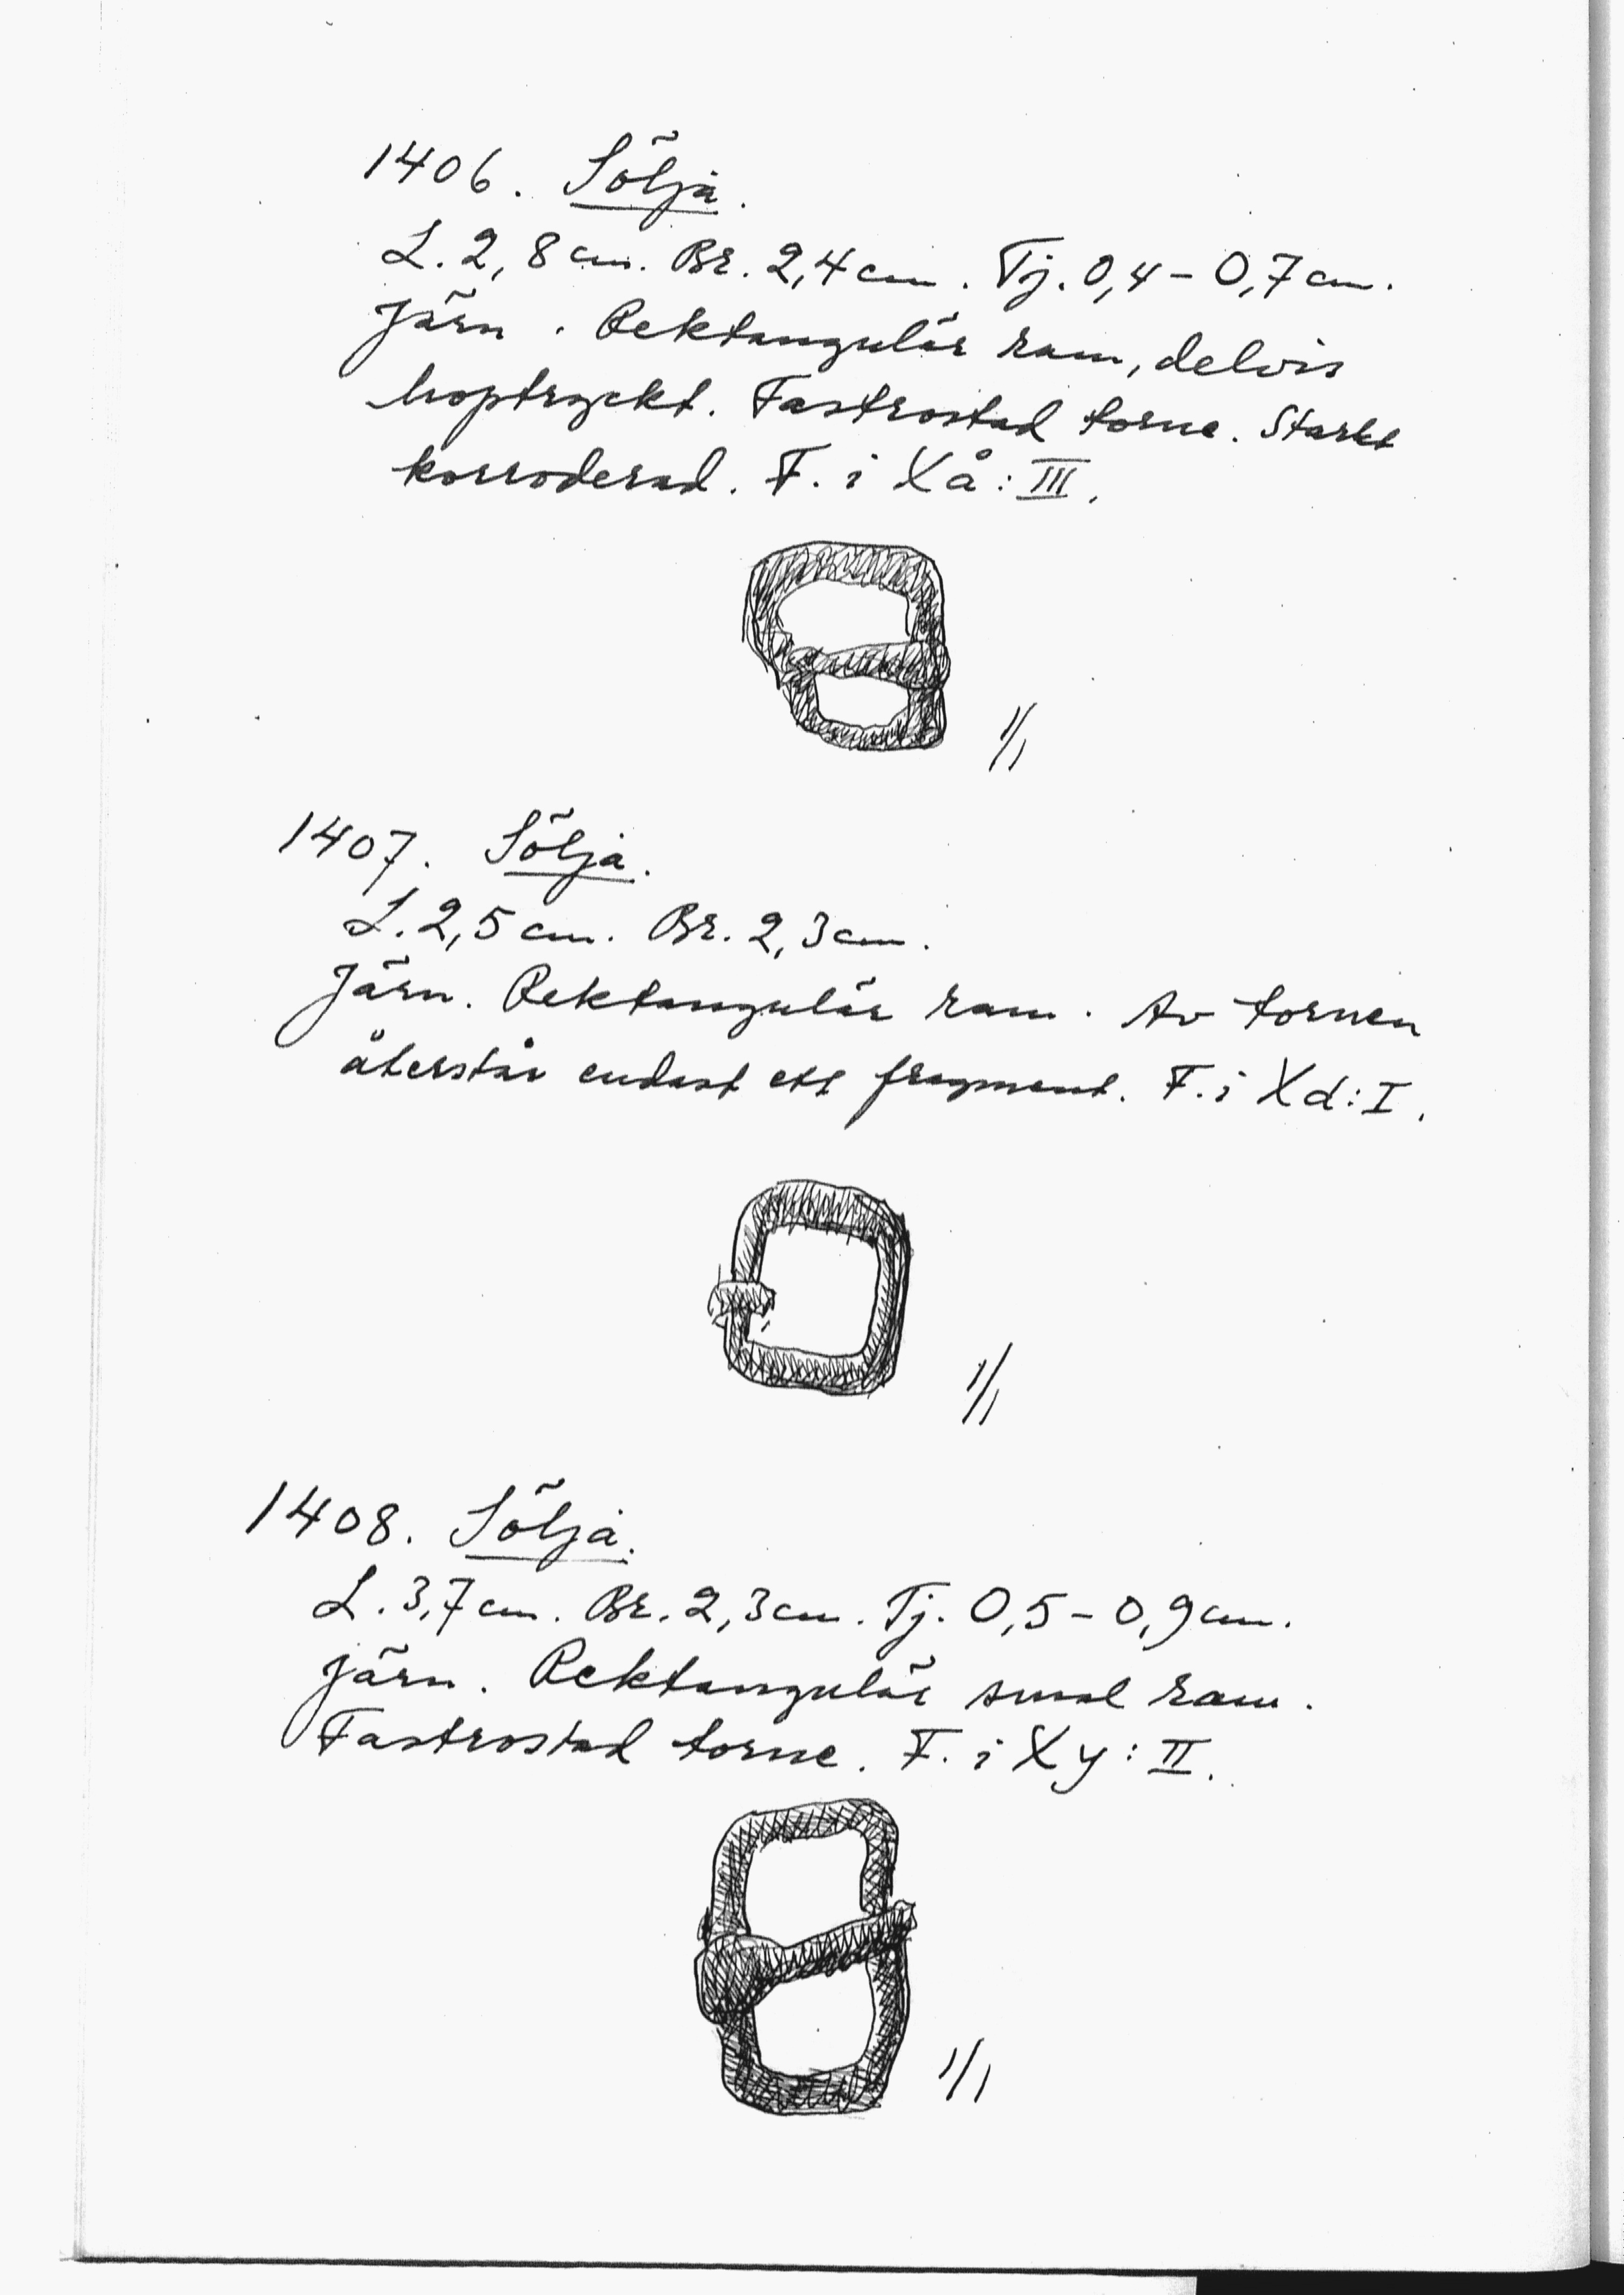 1406. Sölja.
L. 2,8 cm. Br. 2,4 cm. Tj. 0,4 - 0,7 cm.
Järn. Rektangulär ram, delvis
hoptryckt. Fastrostad torne. Starkt
korroderad. F. i Xå: III.
1/1
1407. Sölja.
L. 2,5 cm. Br. 2,3 cm.
Järn. Rektangulär ram. Av tornen
återstår endast ett fragment. F. i Xd: I.
1/1
1408. Sölja.
L. 3,7 cm. Br. 2,3 cm. Tj. 0,5 - 0,9 cm.
Järn. Rektangulär smal ram.
Fastrostad torne. F. i Xy: II.
1/1